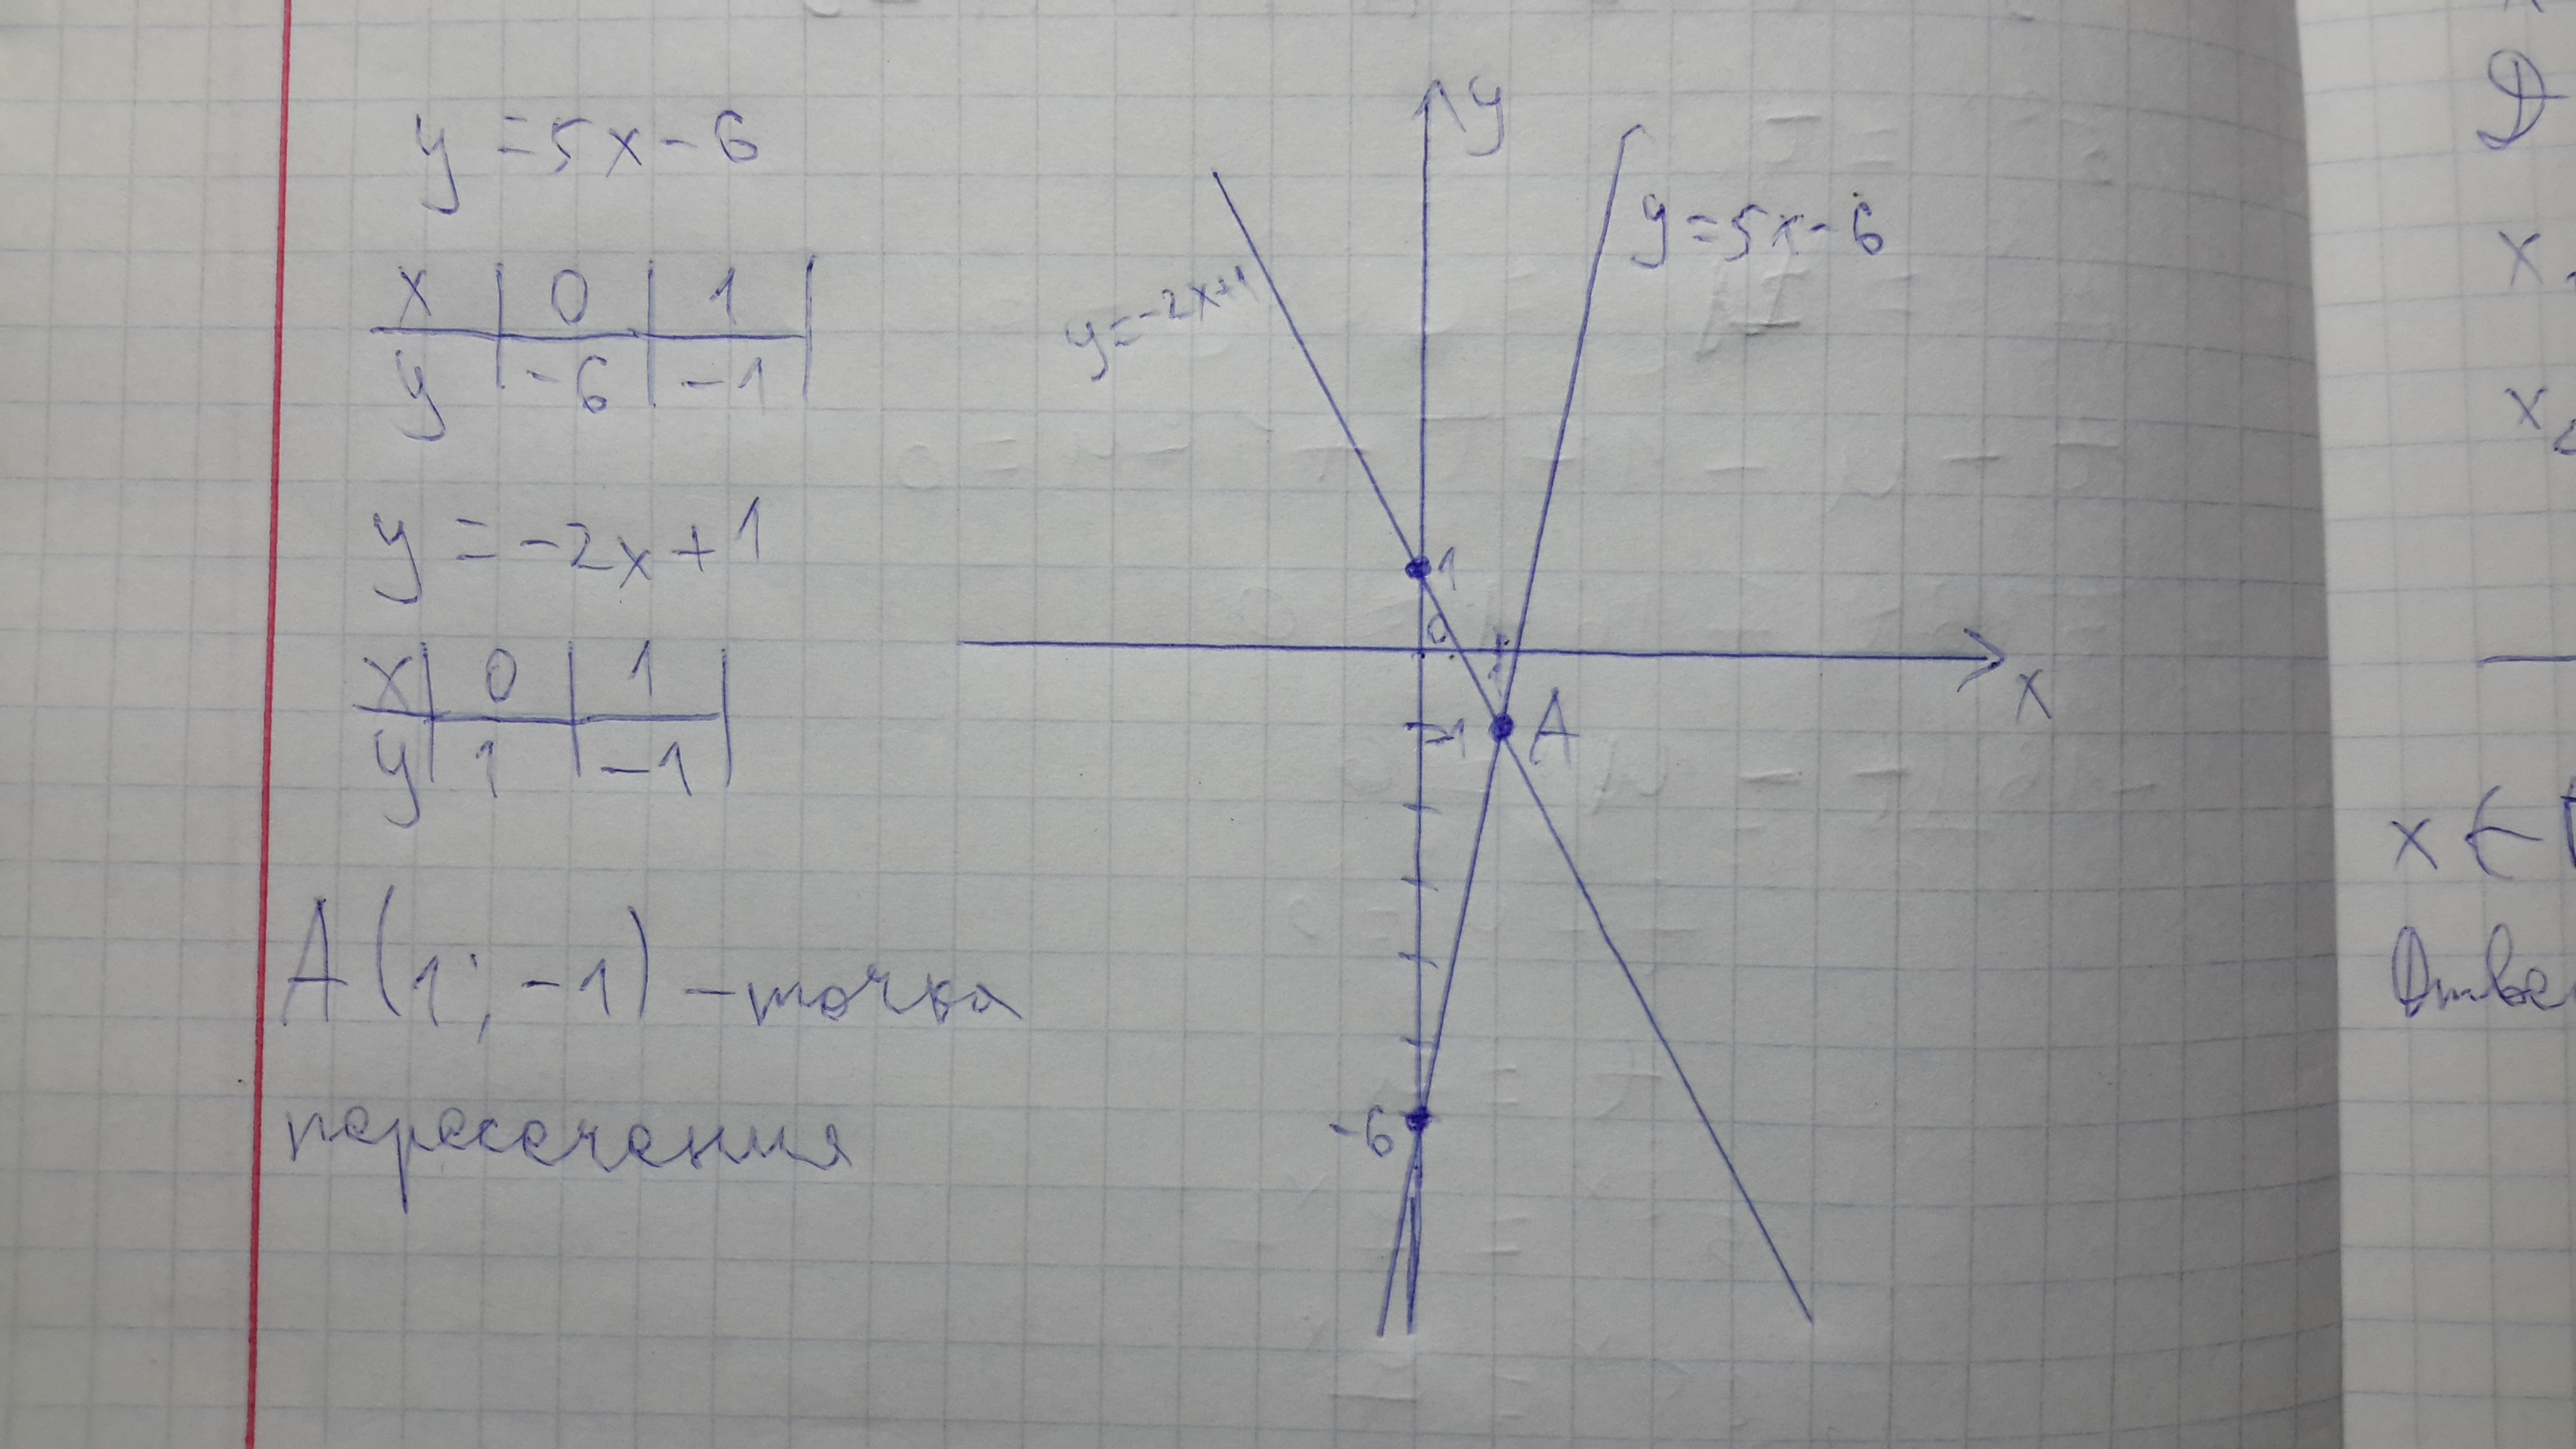 y = 5x - 6
x | 0 | 1
y | -6 | -1
y = -2x + 1
x | 0 | 1
y | 1 | -1
A (1; -1) - точка
пересечения
y
y = 5x - 6
y = -2x+1
1
0
1
x
-1
A
-6
D
x
x
x ∈
Отве